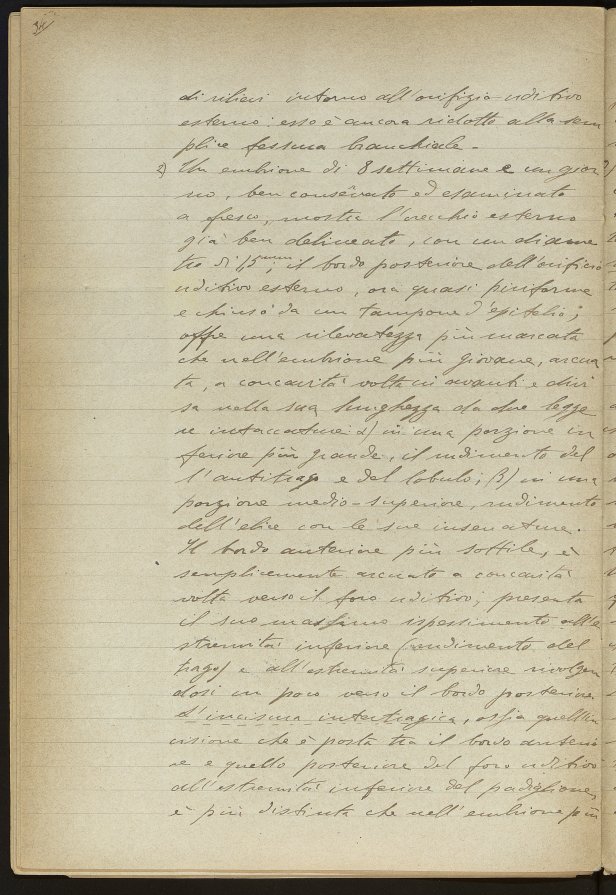 34
di rilievi intorno all'orifizio uditivo
esterno: esso è ancora ridotto alla sem
plice fessura branchiale.
2) Un embrione di 8 settimane e un gior
no, ben conservato ed esaminato
a fresco, mostra l'orecchio esterno
già ben delineato, con un diame
tro di 1,5 mm; il bordo posteriore dell'orifizio
uditivo esterno, ora quasi piriforme
e chiuso da un tampone d'epitelio;
offre una rilevatezza più marcata
che nell'embrione più giovane, arcua
ta, a concavità volta in avanti e divi
sa nella sua lunghezza da due legge
re intaccature: α) in una porzione in
feriore più grande, il rudimento del
l'antitrago e del lobulo; β) in una
porzione medio-superiore, rudimento
dell'elice con le sue insenature.
Il bordo anteriore più sottile, è
semplicemente arcuato a concavità
volta verso il foro uditivo; presenta
il suo massimo ispessimento alle
stremità inferiore (rudimento del
trago) e all'estremità superiore rivolgen
dosi un poco verso il bordo posteriore.
L'incisura intertragica, ossia quell'in
cisione che è posta tra il bordo anterio
re e quello posteriore del foro uditivo
all'estremità inferiore del padiglione,
è più distinta che nell'embrione più